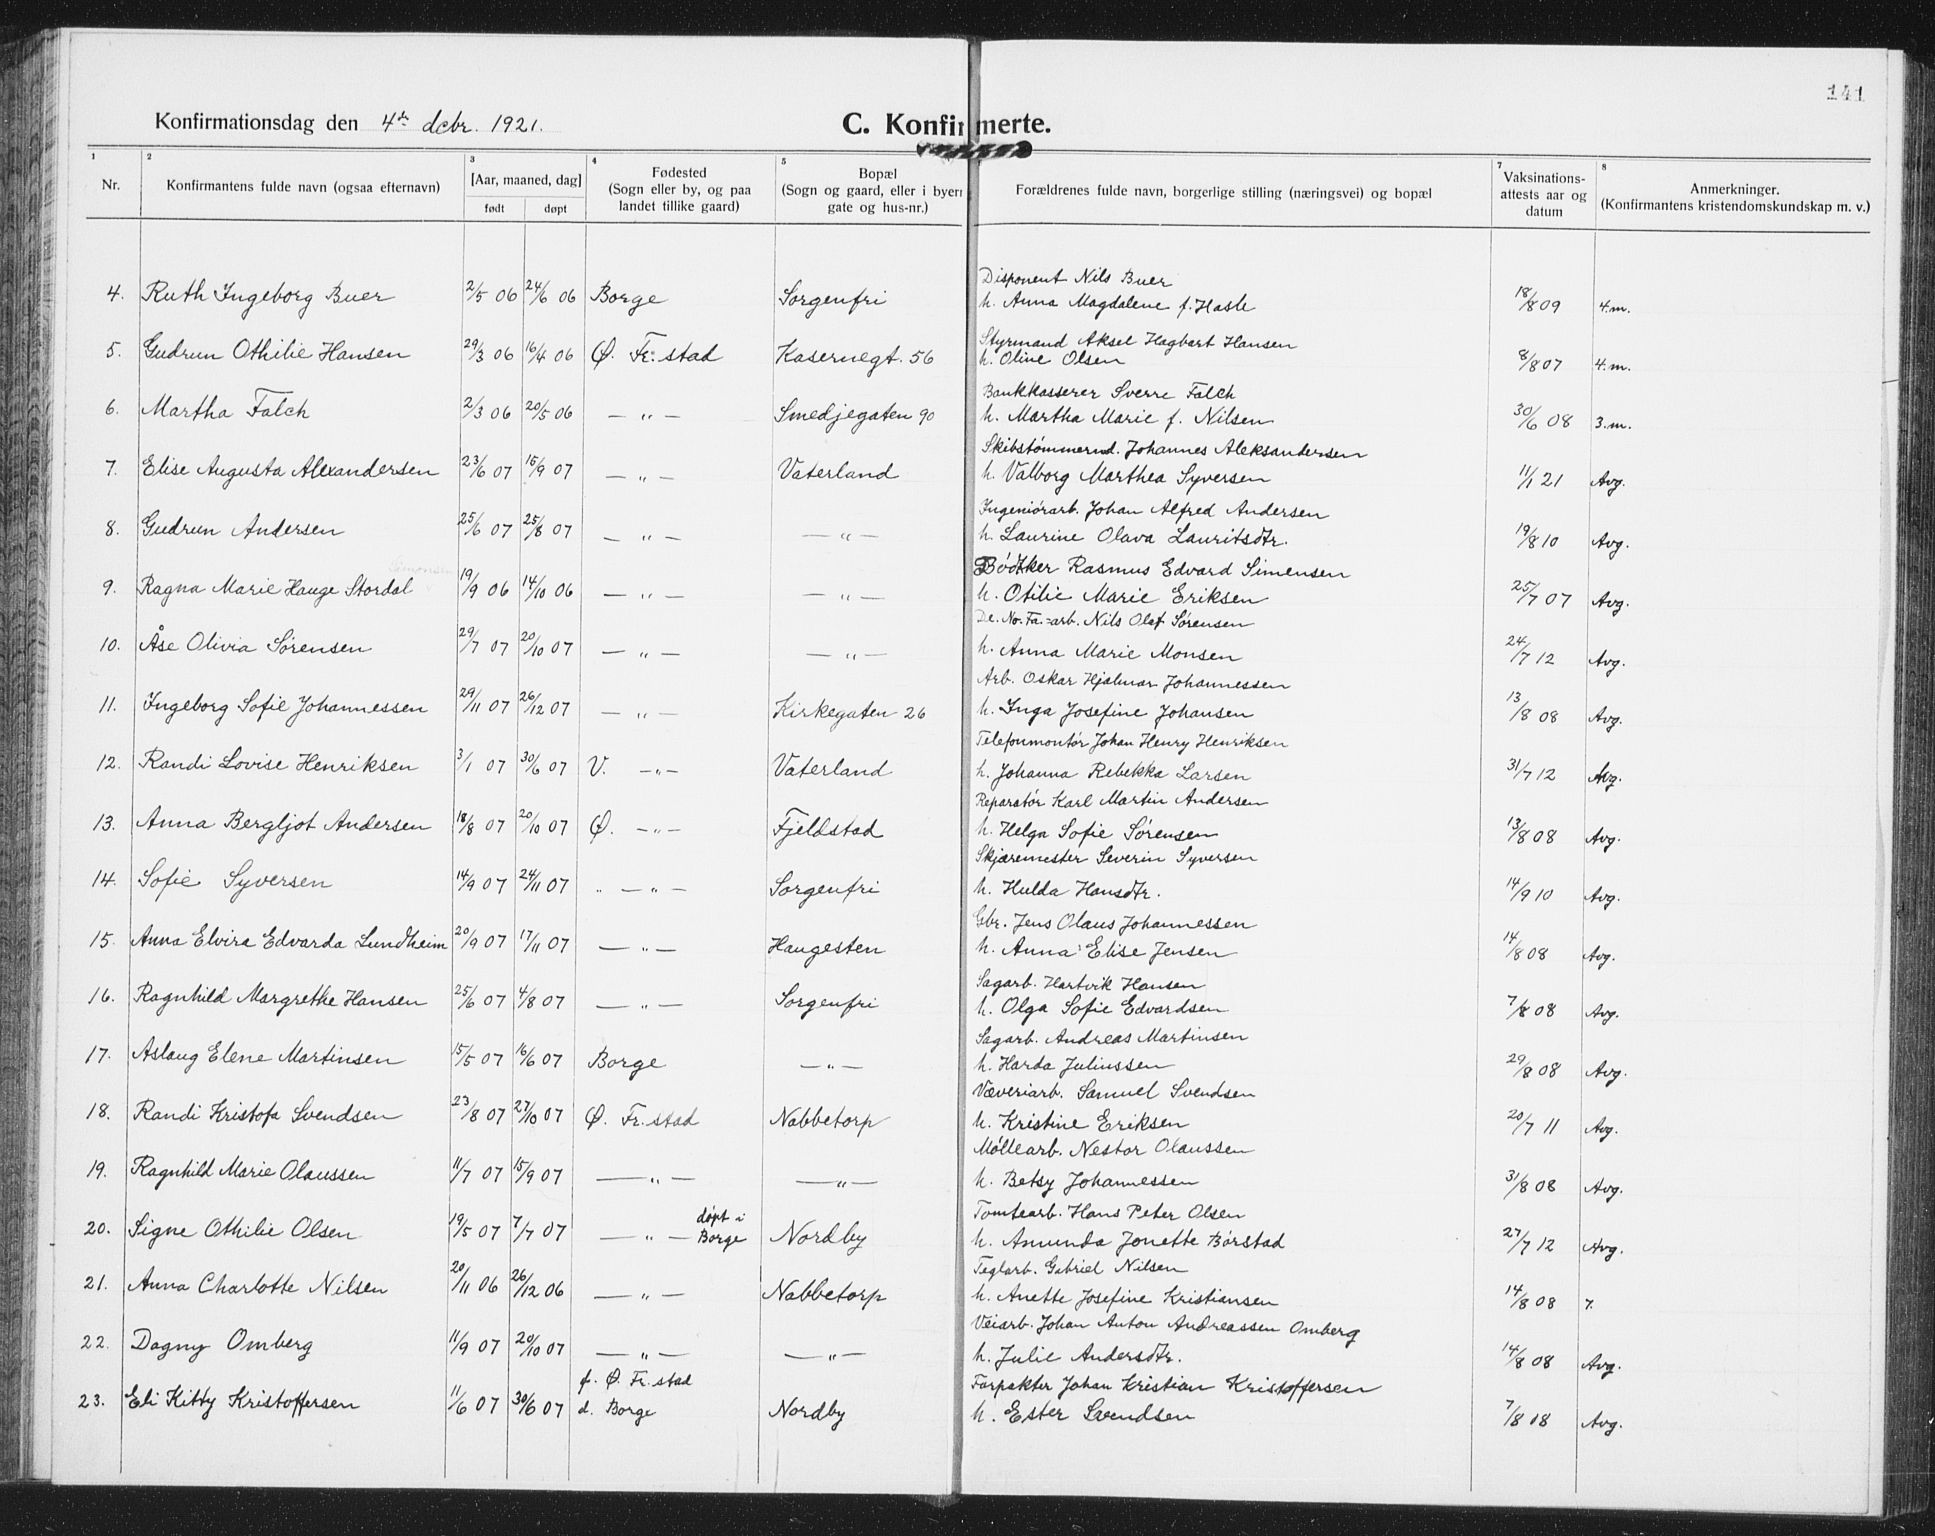 141
Konfirmationsdag den 4de dcbr. 1921.
C. Konfirmerte.
1 2 3 4 5 7 8
Nr.
Konfirmantens fulde navn (ogsaa efternavn)
[Aar, maaned, dag]
født døpt
Fødested
(Sogn eller by, og paa
landet tillike gaard)
Bopæl
(Sogn og gaard, eller i byern
gate og hus-nr.)
Forældrenes fulde navn, borgerlige stilling (næringsvei) og bopæl
Vaksinations-
attests aar og
datum
Anmerkninger.
(Konfirmantens kristendomskundskap m. v.)
Disponent Nils Buer
4. Ruth Ingeborg Buer 2/5 06 24/6 06 Borge Sorgenfri h. Anna Magdalene f. Hasle 18/8 09 4.m.
Styrmand Aksel Hagbart Hansen
5. Gudrun Othilie Hansen 29/3 06 16/4 06 Ø. Fr.stad Kasernegt. 56 h. Oline Olsen 8/8 07 4.m.
Bankkasserer Sverre Falch
6. Martha Falch 2/3 06 20/5 06 — " — Smedjegaten 90 h. Martha Marie f. Nilsen 30/6 08 3.m.
Skibstømmermd. Johannes Aleksandersen
7. Elise Augusta Alexandersen 23/6 07 15/9 07 — " — Vaterland h. Valborg Marthea Syversen 11/1 21 Avg.
Ingeniørarb. Johan Alfred Andersen
8. Gudrun Andersen 25/6 07 25/8 07 — " — — " — h. Laurine Olava Lauritsdtr. 19/8 10 Avg.
Simonsen
Bødker Rasmus Edvard Simensen
9. Ragna Marie Hauge Stordal 19/9 06 14/10 06 — " — — " — h. Otilie Marie Eriksen 25/7 07 Avg.
De. No. Fa.-arb. Nils Olaf Sørensen
10. Åse Olivia Sørensen 29/7 07 20/10 07 — " — — " — h. Anna Marie Monsen 24/7 12 Avg.
Arb. Oskar Hjalmar Johannessen
11. Ingeborg Sofie Johannessen 29/11 07 26/12 07 — " — Kirkegaten 26 h. Inga Josefine Johansen 13/8 08 Avg.
Telefonmontør Johan Henry Henriksen
12. Randi Lovise Henriksen 3/1 07 30/6 07 V. — " — Vaterland h. Johanna Rebekka Larsen 31/7 12 Avg.
Reparatør Karl Martin Andersen
13. Anna Bergljot Andersen 18/8 07 20/10 07 Ø. — " — Fjeldstad h. Helga Sofie Sørensen 13/8 08 Avg.
Skjæremester Severin Syversen
14. Sofie Syversen 14/9 07 24/11 07 " — " — Sorgenfri h. Hulda Hansdtr. 14/9 10 Avg.
Gbr. Jens Olaus Johannessen
15. Anna Elvira Edvarda Lundheim 20/9 07 17/11 07 — " — Haugesten h. Anna Elise Jensen 14/8 08 Avg.
Sagarb. Hartvik Hansen
16. Ragnhild Margrethe Hansen 25/6 07 4/8 07 — " — Sorgenfri h. Olga Sofie Edvardsen 7/8 08 Avg.
Sagarb. Andreas Martinsen
17. Aslaug Elene Martinsen 15/5 07 16/6 07 Borge — " — h. Harda Juliussen 29/8 08 Avg.
Væveriarb. Samuel Svendsen
18. Randi Kristofa Svendsen 23/8 07 27/10 07 Ø. Fr.stad Nabbetorp h. Kristine Eriksen 20/7 11 Avg.
Møllearb. Nestor Olaussen
19. Ragnhild Marie Olaussen 11/7 07 15/9 07 — " — — " — h. Betsy Johannessen 31/8 08 Avg.
døpt i Tomtearb. Hans Peter Olsen
20. Signe Othilie Olsen 19/5 07 7/7 07 — " — Borge Nordby h. Amunda Jonette Børstad 27/7 12 Avg.
Teglarb. Gabriel Nilsen
21. Anna Charlotte Nilsen 20/11 06 26/12 06 — " — Nabbetorp h. Anette Josefine Kristiansen 14/8 08 7.
Veiarb. Johan Anton Andreassen Omberg
22. Dagny Omberg 11/9 07 20/10 07 — " — — " — h. Julie Andersdtr. 14/8 08 Avg.
f. Ø. Fr.stad Forpakter Johan Kristian Kristoffersen
23. Eli Kitty Kristoffersen 11/6 07 30/6 07 d. Borge Nordby h. Ester Svendsen 7/8 08 Avg.